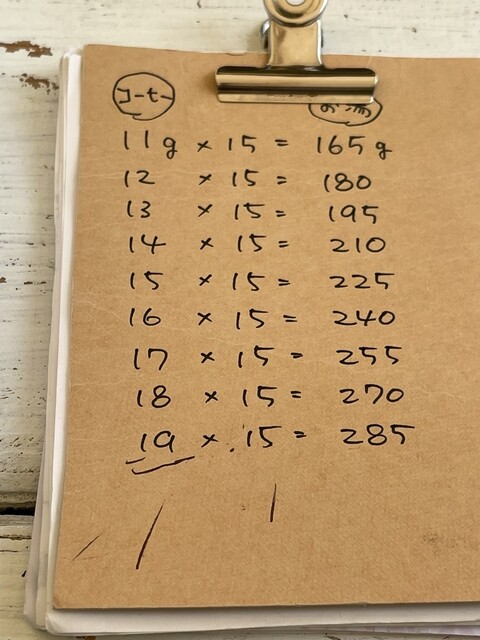 コーヒー お湯
11g × 15 = 165g
12 × 15 = 180
13 × 15 = 195
14 × 15 = 210
15 × 15 = 225
16 × 15 = 240
17 × 15 = 255
18 × 15 = 270
19 × 15 = 285